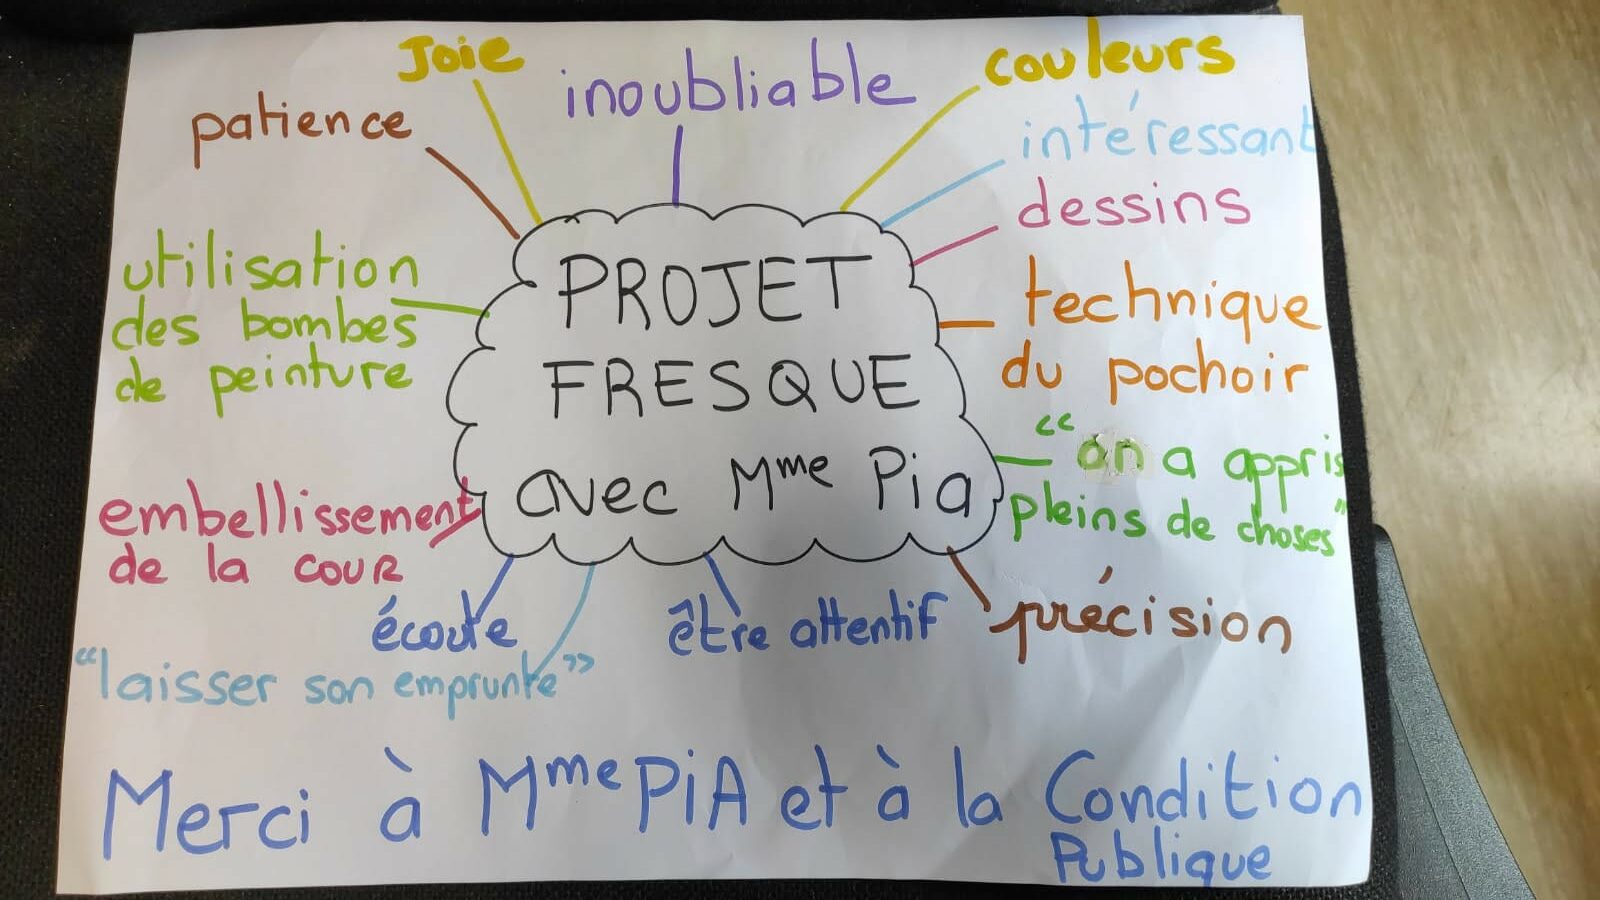 Joie
inoubliable
couleurs
patience
intéressant
dessins
utilisation
des bombes
de peinture
PROJET
FRESQUE
avec Mme Pia
technique
du pochoir
"on a appris
pleins de choses"
embellissement
de la cour
écoute
être attentif
précision
"laisser son emprunte"
Merci à Mme PiA et à la Condition
Publique